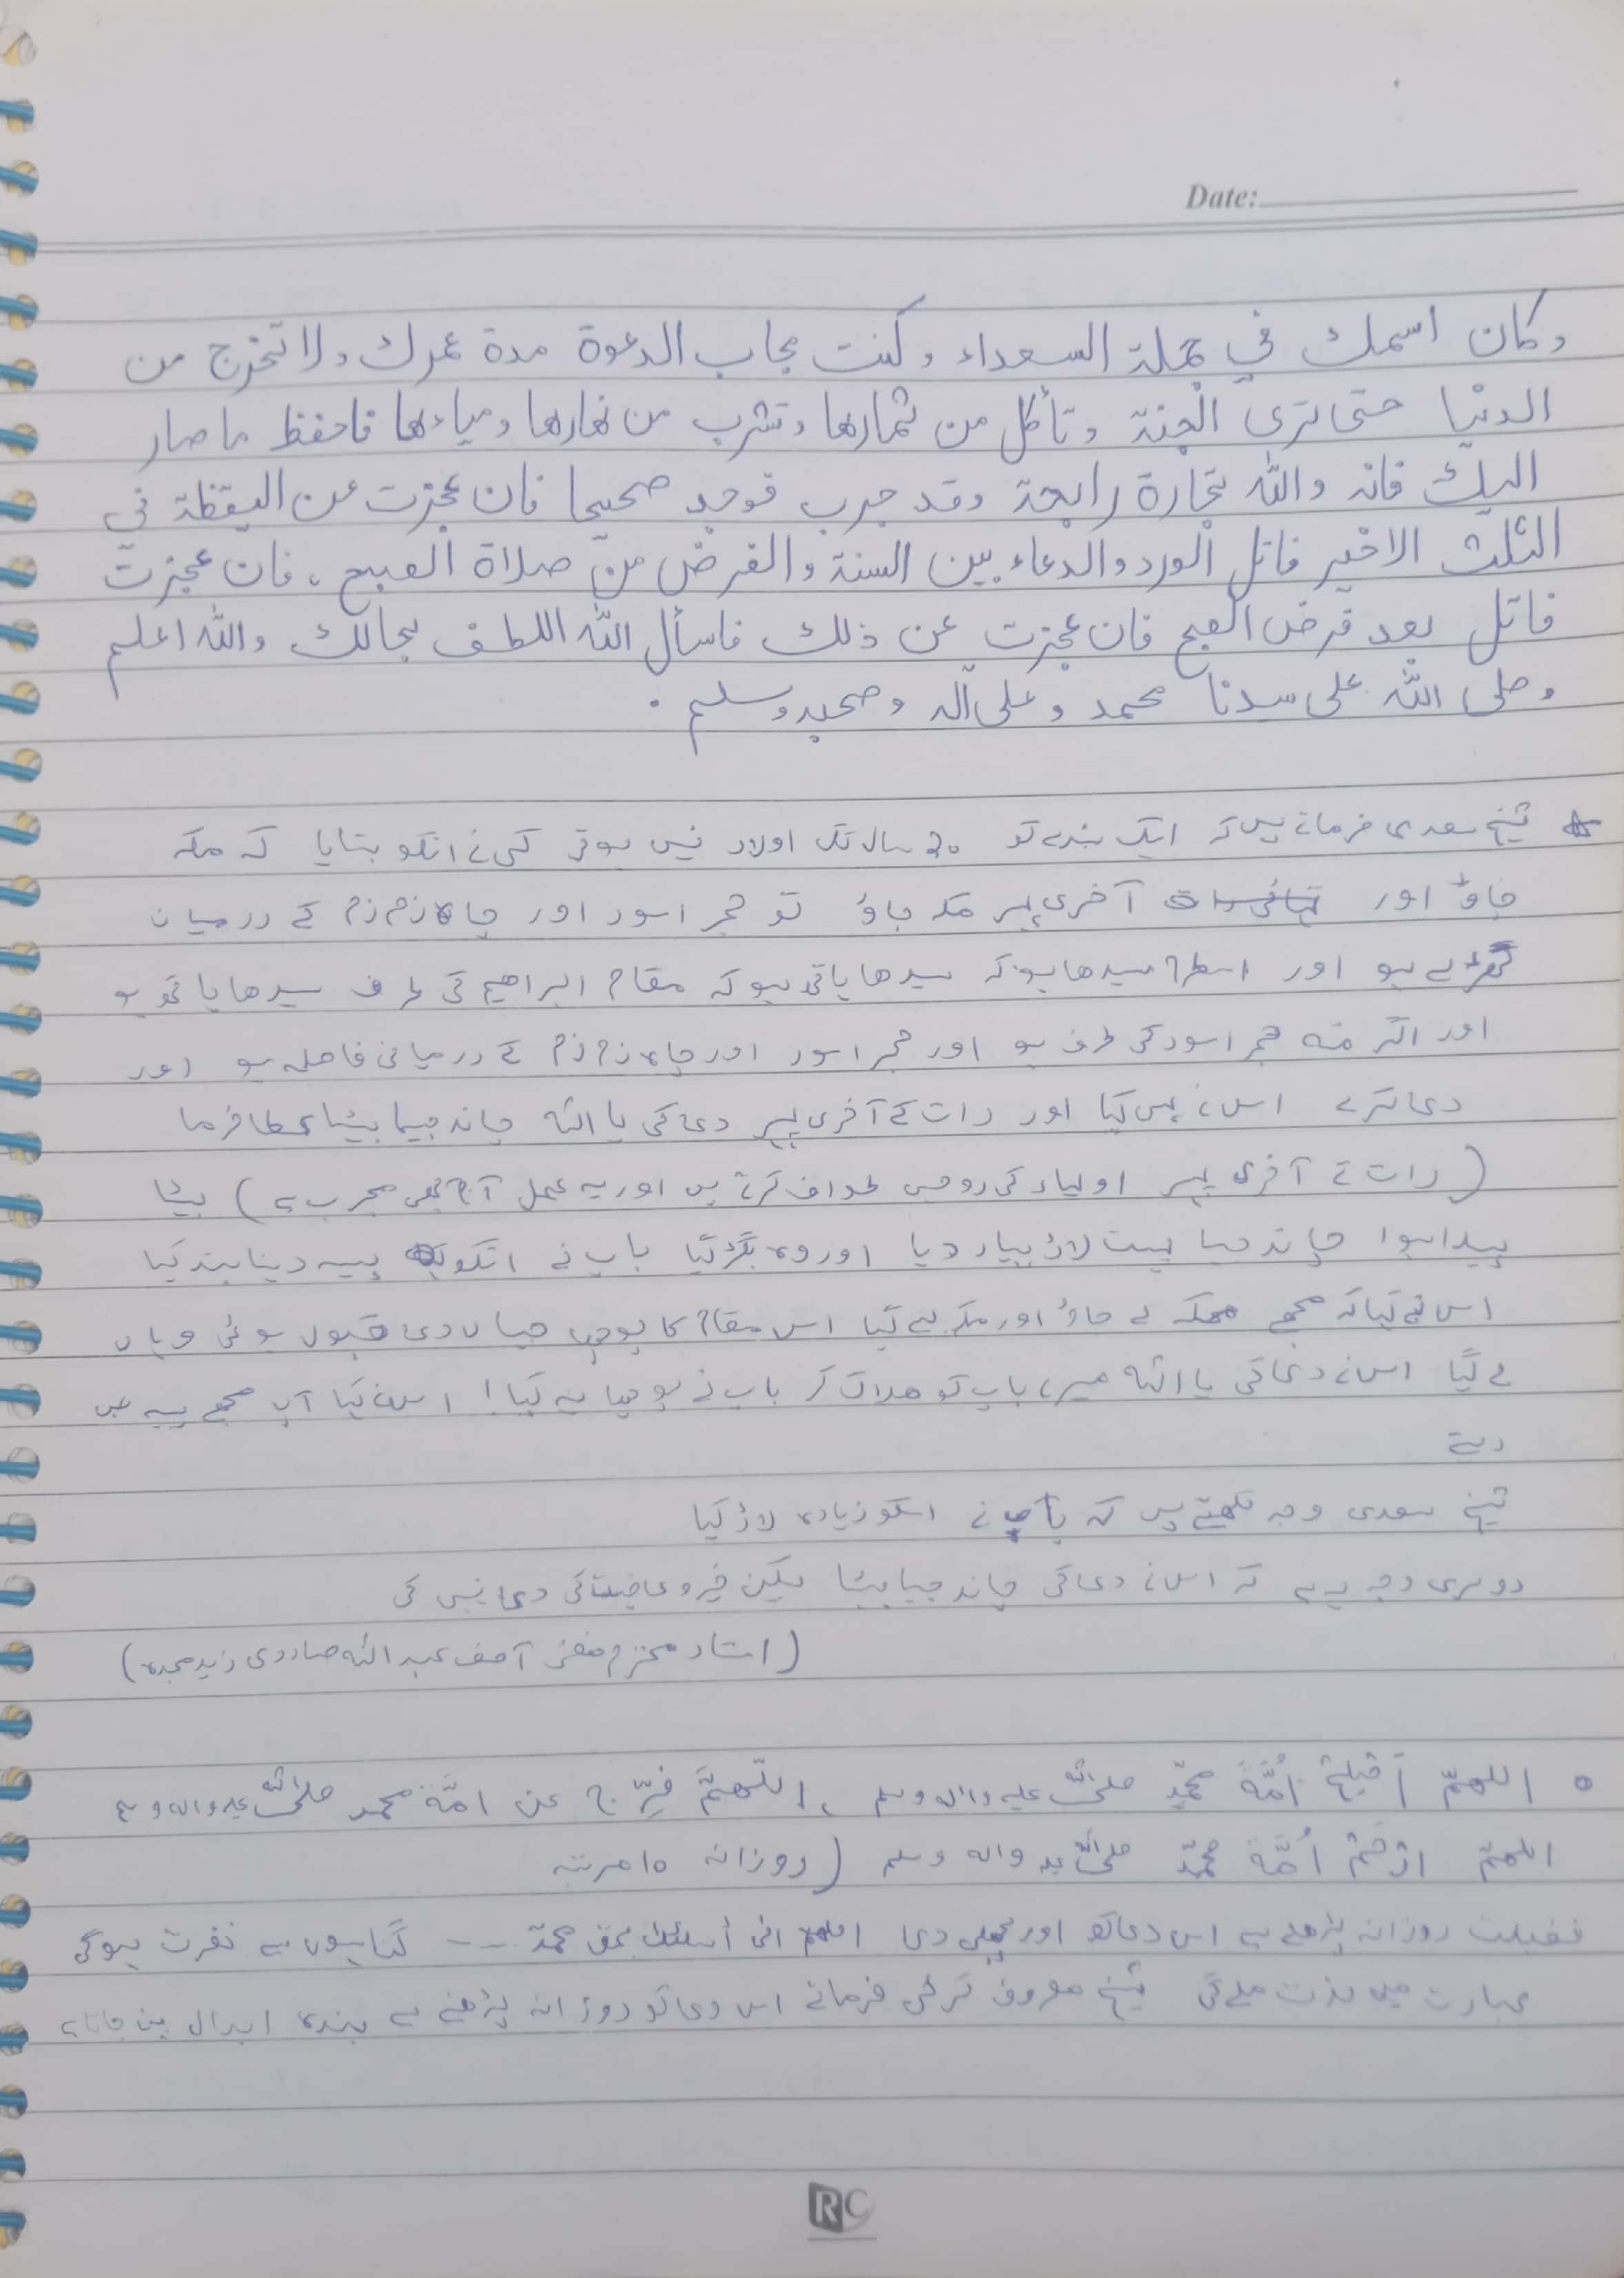 Date:
وكان اسمك في جملة السعداء وكنت مجاب الدعوة مدة عمرك ولا تخرج من
الدنيا حتى ترى الجنة وتأكل من ثمارها وتشرب من نهارها ومياءها فاحفظ ما صار
اليك فانه والله تجارة رابحة وقد جرب فوجد صحيحا فان عجزت عن اليقظة في
الثلث الاخير فاتل الورد والدعاء بين السنة والفرض من صلاة الصبح ، فان عجزت
فاتل بعد فرض الصبح فان عجزت عن ذلك فاسأل الله اللطف بحالك والله اعلم
وصلى الله على سيدنا محمد وعلى آله وصحبه وسلم .
شیخ سعدی فرماتے ہیں کہ ایک بندے کو سال تک اولاد نہیں ہوئی کسی نے انکو بتایا کہ مکہ
جاؤ اور آخری پہر مکہ جاؤ تو حجر اسود اور چاہ زم زم کے درمیان
کھڑے ہو اور اسطرح سیدھا ہو کہ سیدھا ہاتھ ہو کہ مقام ابراھیم کی طرف سیدھا ہاتھ ہو
اور اگر منہ حجر اسود کی طرف ہو اور حجر اسود اور چاہ زم زم کے درمیانی فاصلہ ہو اور
دعا کرے اس نے یہی کیا اور رات کے آخری پہر دعا کی یا اللہ چاند جیسا بیٹا عطا فرما
(رات کے آخری پہر اولیاء کی روحیں طواف کرتی ہیں اور یہ عمل آج بھی مجرب ہے) بیٹا
پیدا ہوا چاند جیسا بہت لاڈ پیار دیا اور وہ بگڑ گیا باپ نے انکو پیسہ دینا بند کیا
اس نے کہا کہ مجھے مکہ لے جاؤ اور مکہ لے گیا اس مقام کا پوچھا جہاں دعا قبول ہوئی وہاں
لے گیا اس نے دعا کی یا اللہ میرے باپ کو ھلاک کر باپ نے پوچھا یہ کیا! اس نے کہا آپ مجھے پیسہ نہیں
دیتے
شیخ سعدی وجہ لکھتے ہیں کہ باپ نے اسکو زیادہ لاڈ کیا
دوسری وجہ یہ ہے کہ اس نے دعا کی چاند جیسا بیٹا لیکن خیر و عافیت کی دعا نہیں کی
(استاد محترم مفتی آصف عبد اللہ قادری زید مجدہ)
اللهمّ اَصْلِحْ اُمَّةَ محمّدٍ صلی اللہ علیہ والہ وسلم ، اللّهمَّ فَرِّج عن امَّة محمد صلی اللہ علیہ والہ وسلم
اللهمّ ارْحَمْ اُمَّة محمّد صلی اللہ علیہ والہ وسلم (روزانہ ۱۰ مرتبہ
فضیلت روزانہ پڑھنے سے اس دعا کو اور پچھلی دعا اللهم انی أسئلك بحق محمّد --- گناہوں سے نفرت ہوگی
عبادت میں لذت ملے گی شیخ معروف کرخی فرماتے اس دعا کو روزانہ پڑھنے سے بندہ ابدال بن جاتا ہے
RC